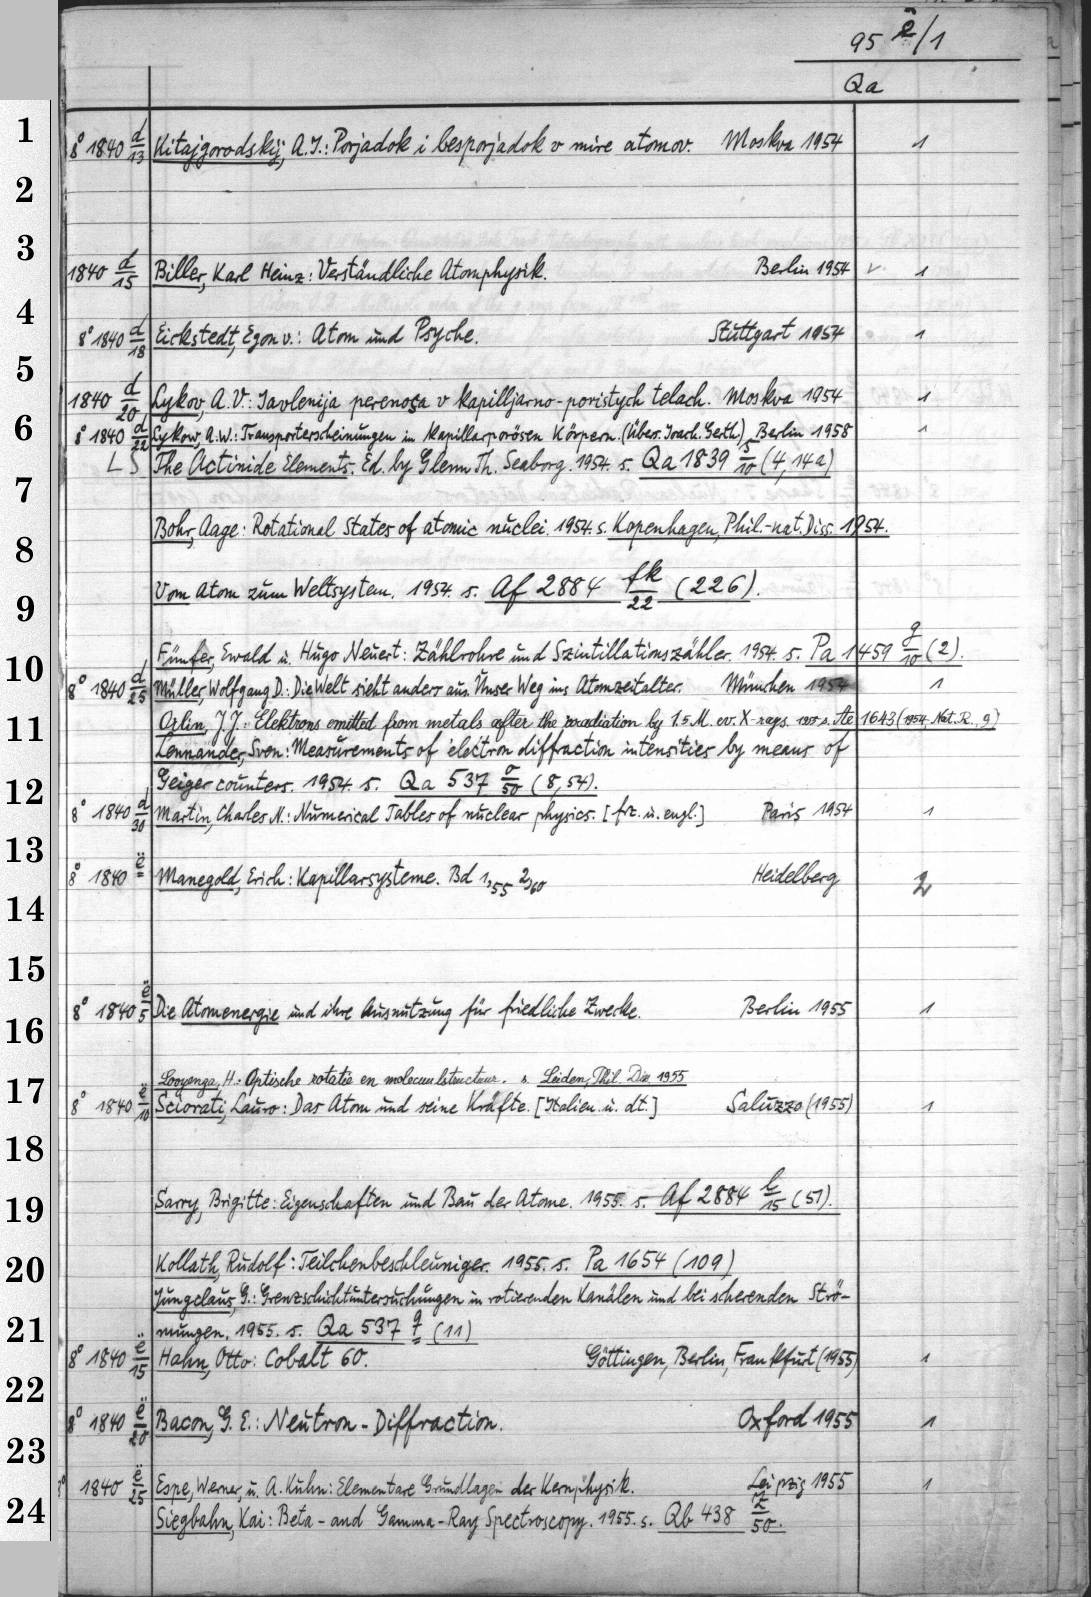 95 ë/1
Qa
1
8° 1840 d/13 Kitajgorodskij, A.I.: Porjadok i besporjadok v mire atomov. Moskva 1954 1
2
3
1840 d/15 Biller, Karl Heinz: Verständliche Atomphysik. Berlin 1954 v. 1
4
8° 1840 d/18 Eickstedt, Egon v.: Atom und Psyche. Stuttgart 1954 1
5
1840 d/20 Lykov, A.V.: Javlenija perenosa v kapilljarno-poristych telach. Moskva 1954 1
6
8° 1840 d/22 Lykow, A.W.: Transporterscheinungen in kapillarporösen Körpern. (Übers. Joach. Gerth.) Berlin 1958 1
LS The Actinide Elements. Ed. by Glenn Th. Seaborg. 1954. s. Qa 1839 s/10 (4,14a)
7
Bohr, Aage: Rotational States of atomic nuclei. 1954. s. Kopenhagen, Phil.-nat. Diss. 1954.
8
Vom Atom zum Weltsystem. 1954. s. Af 2884 fk/22 (226).
9
Fünfer, Ewald u. Hugo Neuert: Zählrohre und Szintillationszähler. 1954. s. Pa 1459 g/10 (2).
10
8° 1840 d/25 Müller, Wolfgang D.: Die Welt sieht anders aus. Unser Weg ins Atomzeitalter. München 1954 1
11
Orlin, J.J.: Elektrons emitted from metals after the irradiation by 1.5 M. ev. X-rays. 1955. s. Ae 1643 (1954, Nat. R., 9)
Lennander, Sven: Measurements of electron diffraction intensities by means of
Geiger counters. 1954. s. Qa 537 o/50 (8,54).
12
8° 1840 d/30 Martin, Charles N.: Numerical Tables of nuclear physics. [frz. u. engl.] Paris 1954 1
13
8° 1840 ë Manegold, Erich: Kapillarsysteme. Bd 1,55 2,60 Heidelberg 2
14
15
8° 1840 ë/5 Die Atomenergie und ihre Ausnutzung für friedliche Zwecke. Berlin 1955 1
16
Looyenga, H.: Optische rotatie en molecuulstructuur. s. Leiden, Phil. Diss. 1955
17
8° 1840 ë/10 Sciorati, Lauro: Das Atom und seine Kräfte. [Italien. u. dt.] Saluzzo (1955) 1
18
Sarry, Brigitte: Eigenschaften und Bau der Atome. 1955. s. Af 2884 l/15 (51).
19
20
Kollath, Rudolf: Teilchenbeschleuniger. 1955. s. Pa 1654 (109)
Jungclaus, G.: Grenzschichtuntersuchungen in rotierenden Kanälen und bei scherenden Strö-
21
mungen. 1955. s. Qa 537 q (11)
8° 1840 ë/15 Hahn, Otto: Cobalt 60. Göttingen, Berlin, Frankfurt (1955) 1
22
8° 1840 ë/20 Bacon, G. E.: Neutron-Diffraction. Oxford 1955 1
23
8° 1840 ë/25 Espe, Werner, u. A. Kuhn: Elementare Grundlagen der Kernphysik. Leipzig 1955 1
24
Siegbahn, Kai: Beta- and Gamma-Ray Spectroscopy. 1955. s. Qb 438 t/50.